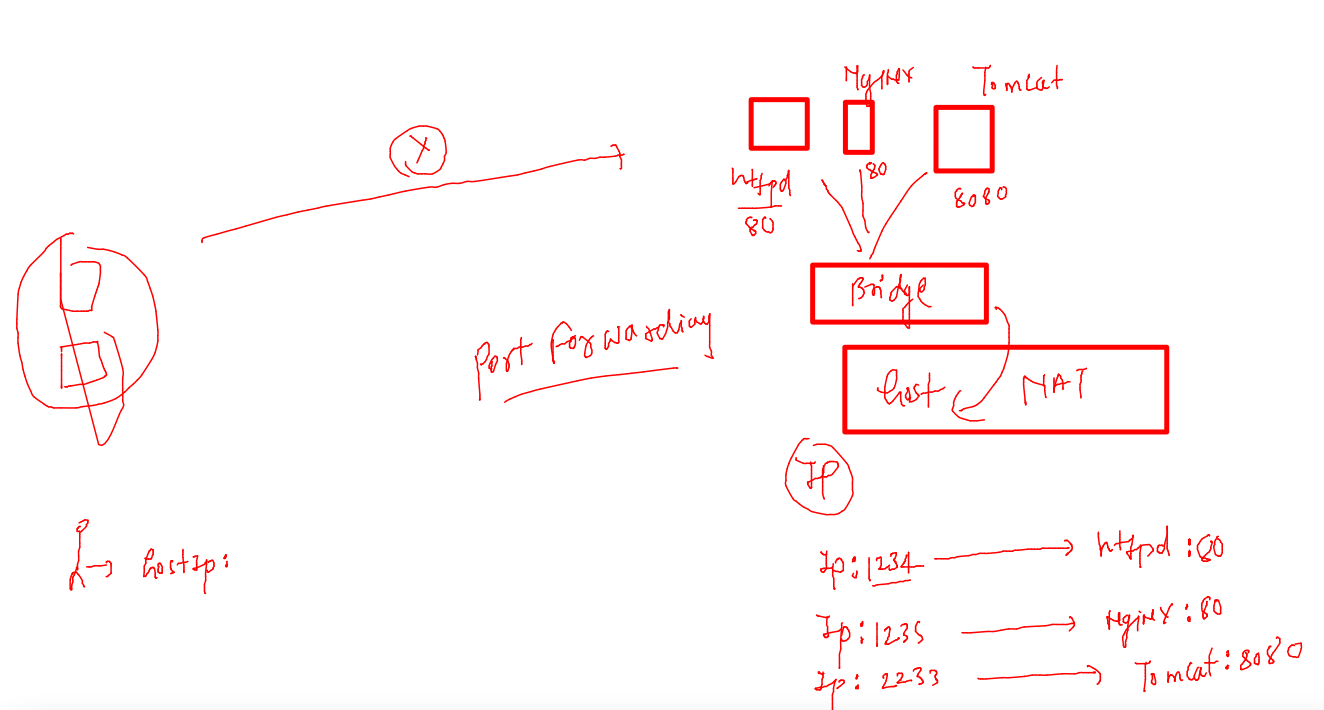 Nginx
Tomcat
X
httpd
80
80
8080
Bridge
Port Forwarding
host NAT
IP
hostIp:
Ip:1234 httpd:80
Ip:1235 Nginx:80
Ip: 2233 Tomcat:8080